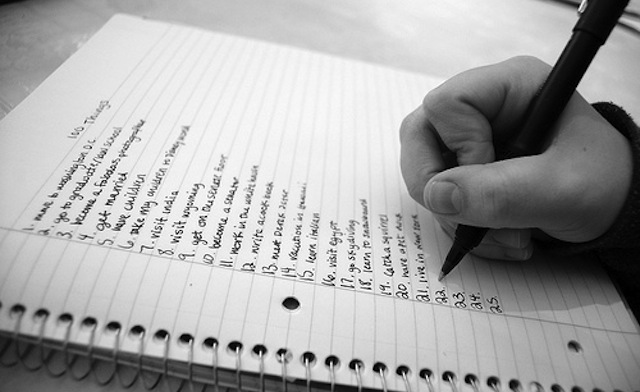 100 Things
1. move to washington D.C
2. go to graduate/law school
3. become a fabulous photographer
4. get married
5. have children
6. take my children to disney world
7. visit india
8. visit wyoming
9. get on the senate floor
10. become a senator
11. work in the white house
12. write a cook book
13. meet Derek Jeter
14. vacation in
15. learn italian
16. visit egypt
17. go skydiving
18. learn to
19. catch a squirrel
20. have a pet
21. live in new york
22.
23.
24.
25.